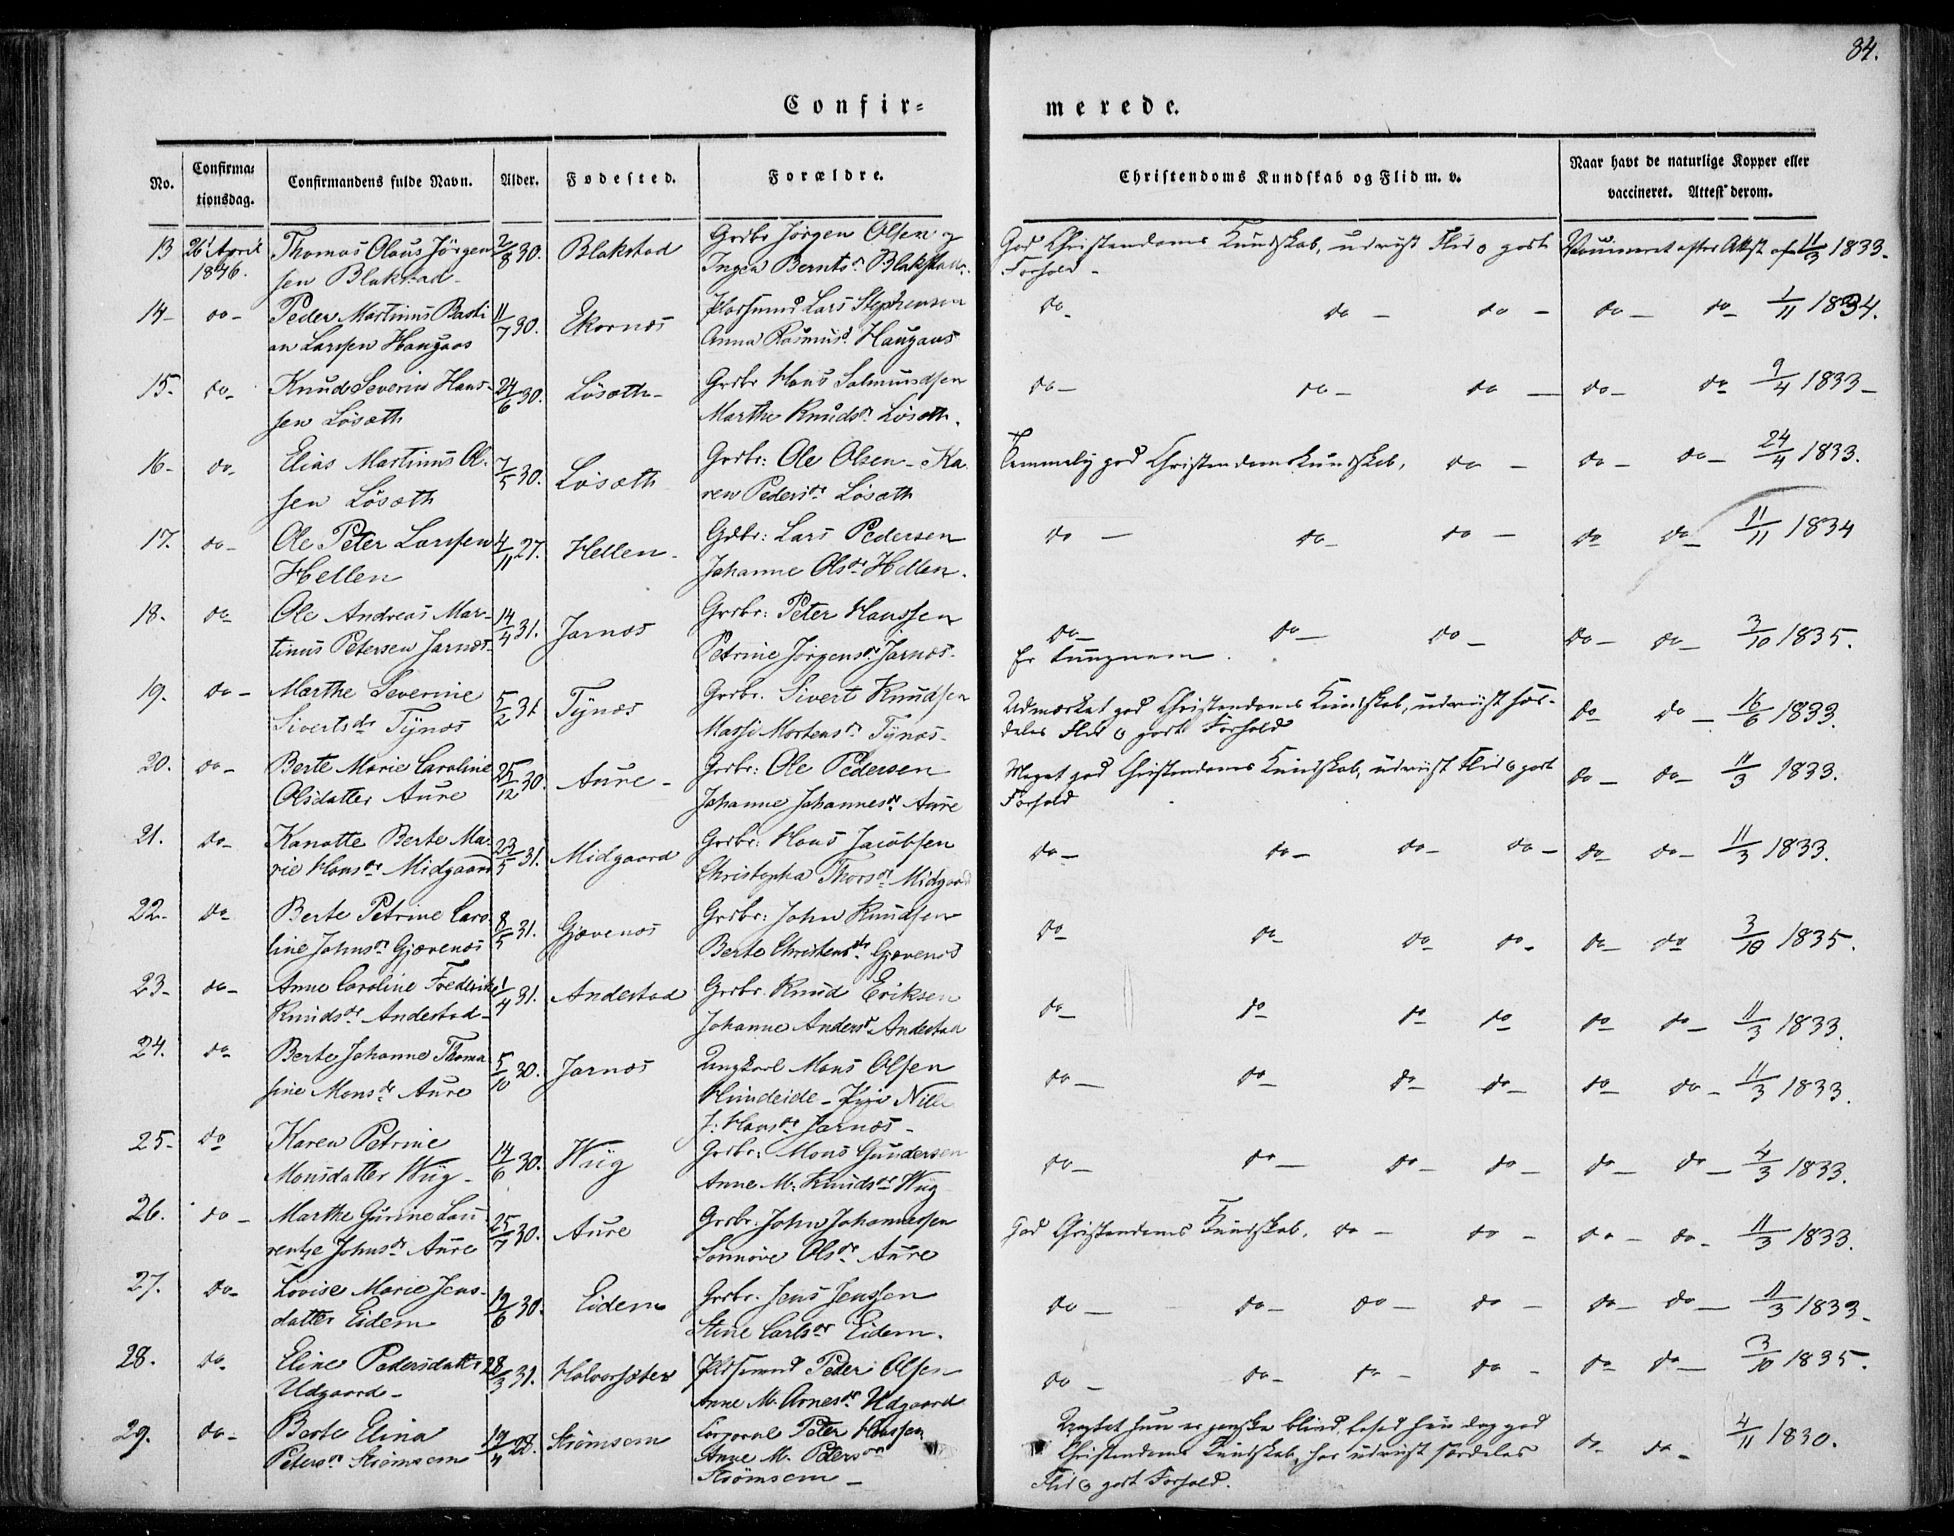 84.
Confir=
merede.
No.
Confirma=
tionsdag.
Confirmandens fulde Navn.
Alder.
Fødested.
Forældre.
Christendoms Kundskab og Flid m. v.
Naar havt de naturlige Kopper eller
vaccineret. Attest derom.
13 26 April Thomas Olaus Jörgen 2/8 30. Blakstad Grdbr Jörgen Olsen og God Christendoms Kundskab, udviist Flid o godt Vaccineret efter Attest af 11/3 1833.
1846. sen Blakstad Ingea Berntsdr Blakstad Forhold
14 do Peder Martinus Basti 11/7 30. Ekornæs Pldsmnd Lars Stephensen do do do do do 1/11 1834.
an Larssen Haugaas Anna Rasmusd. Haugaas
15. do Knud Severin Hans- 24/6 30. Lösæth Grdbr Hans Salmundsen do do do do do 9/4 1833
sen Lösæth Marthe Knudsdr Lösæth.
16 do Elias Martinus Ol- 7/5 30. Lösæth Grdbr: Ole Olsen - Ka Temmelig god Christendomskundskab, do do do 24/4 1833.
sen Lösæth ren Pedersdr Lösæth
17. do Ole Peter Larssen 4/11 27. Hellen Gdbr: Lars Pedersen do do do do do 11/11 1834
Hellen Johanne Olsdr Hellen.
18. do Ole Andreas Mar- 14/4 31. Jarnæs Grdbr: Peter Hanssen do do do do do 3/10 1835.
tinus Petersen Jarnæs Petrine Jörgensdr Jarnæs. Er tungnem.
19. do Marthe Severine 5/2 31 Tÿnæs Grdbr. Sivert Knudsen Udmærket god Christendoms Kundskab, udviist for- do do 16/6 1833.
Sivertsdr Tÿnæs Massi Mortensdr Tÿnæs deles Flid o godt Forhold
20. do Berte Marie Caroline 25/12 30. Aure Grdbr: Ole Pedersen Meget god Christendoms Kundskab, udviist Flid o godt do do 11/3 1833.
Olsdatter Aure Johanne Johannesdr Aure Forhold
21. do Kanutte Berte Ma- 23/5 31. Midgaard Grdbr: Hans Jacobsen do do do do do do 11/3 1833.
rie Hansdr Midgaard Christopha Thorsdr Midgaard
22. do Berte Petrine Caro 8/5 31. Gjævenæs Grdbr: John Knudsen do do do do do do 3/10 1835.
line Johnsdr Gjævenæs Berte Christensdr Gjævenæs
23 do Anne Caroline Frederikke 1/4 31. Andestad Grdbr. Knud Eriksen do do do do do do 11/3 1833.
Knudsdr Andestad Johanne Andersdr Andestad
24. do Berte Johanne Thoma 5/10 30. Jarnæs Ungkarl Mons Olsen do do do do do do 11/3 1833.
sine Monsdr Aure Hundeide - Pige Nille
J: Hansdr Jarnæs
25 do Karen Petrine 14/6 30. Wiig Grdbr: Mons Gundersen do do do do do do 4/3 1833.
Monsdatter Wiig Anne M: Knudsdr Wiig
26. do Marthe Gurine Lau 25/7 30. Aure Grdbr: John Johannessen God Christendoms Kundskab, do do do do 11/3 1833.
rentze Johnsdr Aure Sönnöve Olsdr Aure
27. do Lovise Marie Jens- 19/6 30. Eidem Grdbr. Jens Jenssen do do do do do do 11/3 1833
datter Eidem Stine Carlsdr Eidem.
28. do Eline Pedersdatter 28/3 31. Halvorsæter Pldsmnd Peder Olsen do do do do do do 3/10 1835.
Udgaard Anne M. Arnesdr Udgaard
29. do Berte Elina 19/4 28. Strömsem Corporal Peter Hanssen Uagtet hun er ganske blind, besad hun dog god do do 4/11 1830.
Petersdr Strömsem Anne M. Petersdr Christendoms Kundskab, har udviist særdeles
Strömsem Flid o godt Forhold.